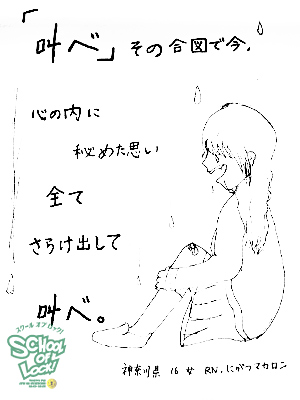 「叫べ」その合図で今、
心の内に
秘めた思い
全て
さらけ出して
叫べ。
スクール オブ ロック!
SCHOOL
OF
LOCK!
神奈川県 16 女 RN.にがつマカロン